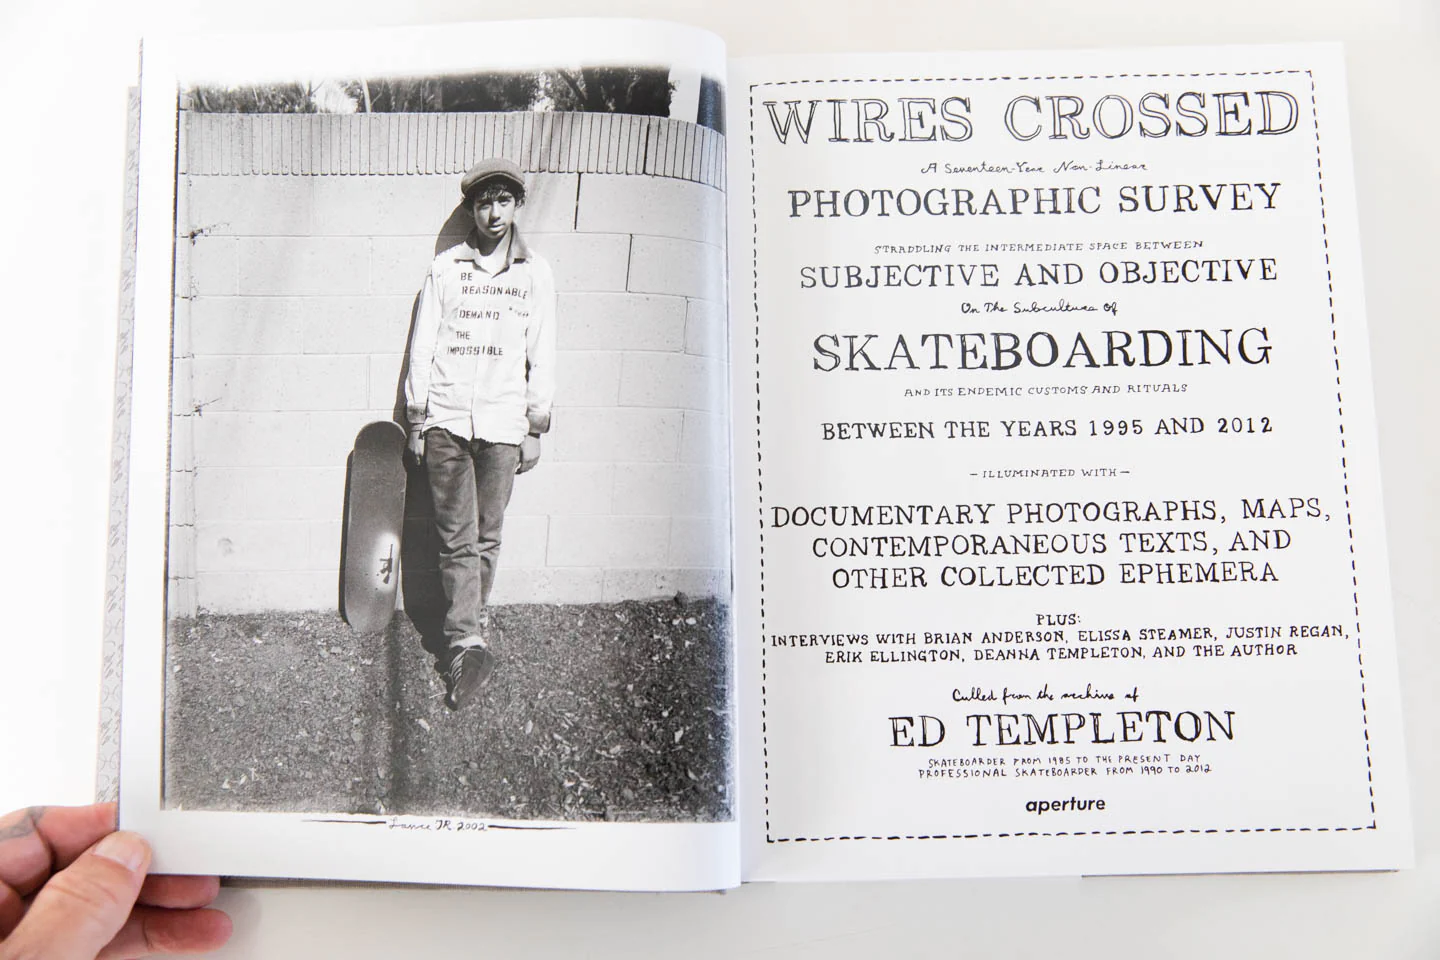 BE
REASONABLE
DEMAND
THE
IMPOSSIBLE
Lance JR 2002
WIRES CROSSED
A Seventeen-Year Non-Linear
PHOTOGRAPHIC SURVEY
STRADDLING THE INTERMEDIATE SPACE BETWEEN
SUBJECTIVE AND OBJECTIVE
On The Subculture of
SKATEBOARDING
AND ITS ENDEMIC CUSTOMS AND RITUALS
BETWEEN THE YEARS 1995 AND 2012
- ILLUMINATED WITH -
DOCUMENTARY PHOTOGRAPHS, MAPS,
CONTEMPORANEOUS TEXTS, AND
OTHER COLLECTED EPHEMERA
PLUS:
INTERVIEWS WITH BRIAN ANDERSON, ELISSA STEAMER, JUSTIN REGAN,
ERIK ELLINGTON, DEANNA TEMPLETON, AND THE AUTHOR
Culled from the archive of
ED TEMPLETON
SKATEBOARDER FROM 1985 TO THE PRESENT DAY
PROFESSIONAL SKATEBOARDER FROM 1990 TO 2012
aperture